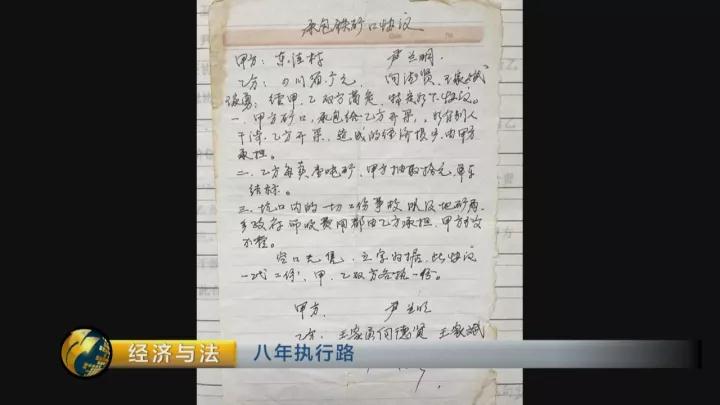 承包铁矿口协议
甲方：东洼村 尹兰明
乙方：四川省 何德贤、王家斌
经甲、乙双方商定，特定如下协议。
一、甲方矿口，承包给乙方开采，如有别人
干涉乙方开采，造成的经济损失由甲方
承担。
二、乙方每英吨矿，甲方抽取拾元，单车
结标。
三、坑口内的一切工伤事故以及地矿两
乡政府所收费用都由乙方承担，甲方
不管。
空口无凭，立字为据，此协议
一式二份，甲、乙双方各执一份。
甲方 尹兰明
乙方：王家勇何德贤 王家斌
经济与法 八年执行路